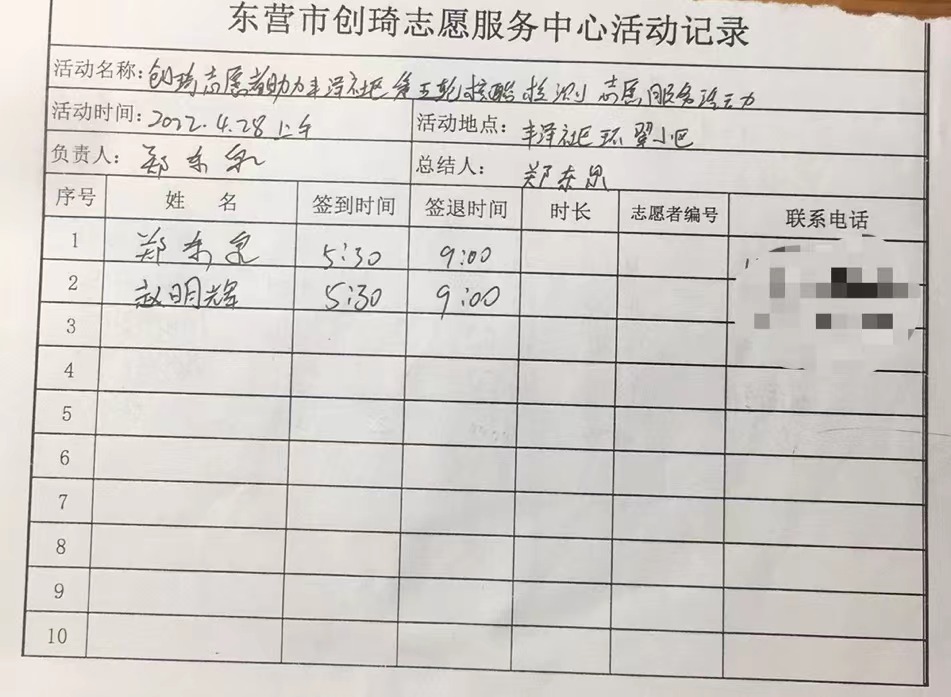 东营市创琦志愿服务中心活动记录
活动名称:创琦志愿者助力丰泽社区第五轮核酸检测志愿服务活动
活动时间:2022.4.28上午 活动地点:丰泽社区环翠小区
负责人:郑东泉 总结人:郑东泉
序号 姓 名 签到时间 签退时间 时长 志愿者编号 联系电话
1 郑东泉 5:30 9:00
2 赵明辉 5:30 9:00
3
4
5
6
7
8
9
10